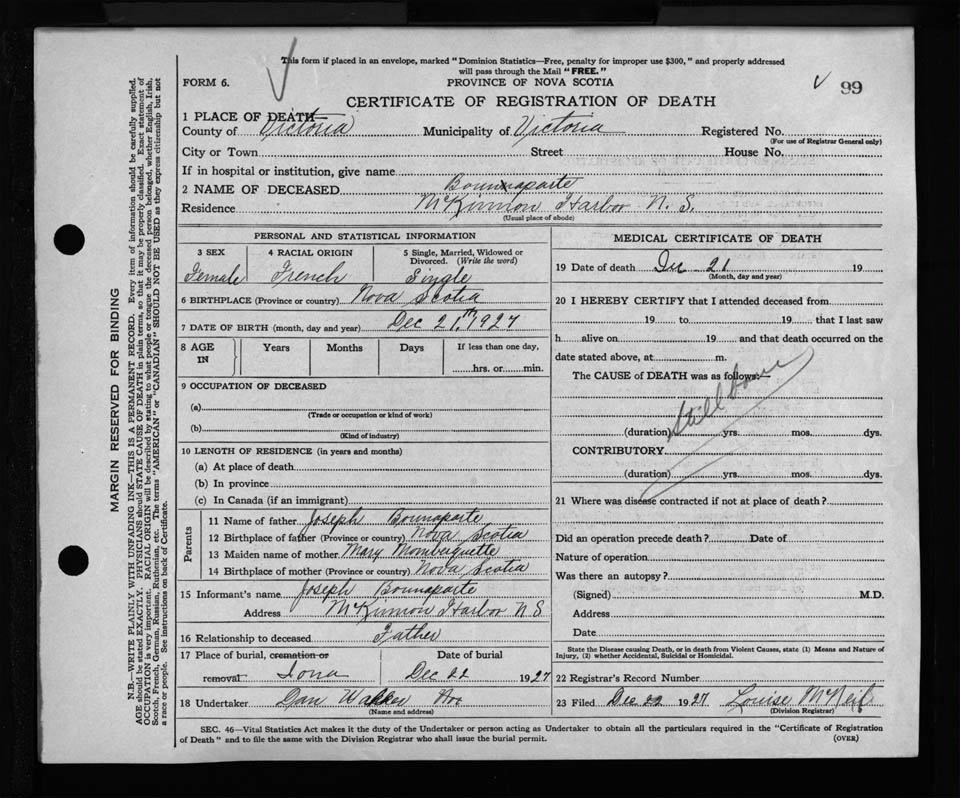 This form if placed in an envelope, marked "Dominion Statistics—Free, penalty for improper use $300," and properly addressed
will pass through the Mail "FREE."
FORM 6. PROVINCE OF NOVA SCOTIA 99
CERTIFICATE OF REGISTRATION OF DEATH
1 PLACE OF DEATH—
County of Victoria Municipality of Victoria Registered No.
(For use of Registrar General only)
City or Town Street House No.
If in hospital or institution, give name
2 NAME OF DECEASED Bounnaparte
Residence McKinnon Harbor N. S.
(Usual place of abode)
PERSONAL AND STATISTICAL INFORMATION
3 SEX 4 RACIAL ORIGIN 5 Single, Married, Widowed or
Divorced. (Write the word)
Female French Single
6 BIRTHPLACE (Province or country) Nova Scotia
7 DATE OF BIRTH (month, day and year) Dec 21th, 1927
8 AGE IN Years Months Days If less than one day,
hrs. or min.
9 OCCUPATION OF DECEASED
(a)
(Trade or occupation or kind of work)
(b)
(Kind of industry)
10 LENGTH OF RESIDENCE (in years and months)
(a) At place of death
(b) In province
(c) In Canada (if an immigrant)
Parents
11 Name of father Joseph Bounnaparte
12 Birthplace of father (Province or country) Nova Scotia
13 Maiden name of mother Mary
14 Birthplace of mother (Province or country) Nova Scotia
15 Informant's name Joseph Bounnaparte
Address McKinnon Harbor N S
16 Relationship to deceased Father
17 Place of burial, cremation or Date of burial
removal Iona Dec 22 1927
18 Undertaker Dan Walker
(Name and address)
MEDICAL CERTIFICATE OF DEATH
19 Date of death Dec 21 19
(Month, day and year)
20 I HEREBY CERTIFY that I attended deceased from
19 to 19 that I last saw
h alive on 19 and that death occurred on the
date stated above, at m.
The CAUSE of DEATH was as follows:—
Still born
(duration) yrs. mos. dys.
CONTRIBUTORY
(duration) yrs. mos. dys.
21 Where was disease contracted if not at place of death?
Did an operation precede death? Date of
Nature of operation
Was there an autopsy?
(Signed) M.D.
Address
Date
State the Disease causing Death, or in death from Violent Causes, state (1) Means and Nature of
Injury, (2) whether Accidental, Suicidal or Homicidal.
22 Registrar's Record Number
23 Filed Dec 22 1927 Louise McNeil
(Division Registrar)
SEC. 46—Vital Statistics Act makes it the duty of the Undertaker or person acting as Undertaker to obtain all the particulars required in the "Certificate of Registration
of Death" and to file the same with the Division Registrar who shall issue the burial permit. (OVER)
MARGIN RESERVED FOR BINDING
N.B.—WRITE PLAINLY, WITH UNFADING INK—THIS IS A PERMANENT RECORD. Every item of information should be carefully supplied.
AGE should be stated EXACTLY. PHYSICIANS should STATE CAUSE OF DEATH in plain terms, so that it may be properly classified. Exact statement of
OCCUPATION is very important. RACIAL ORIGIN will be described by stating to what people or tongue the deceased person belonged, whether English, Irish,
Scotch, French, German, Russian, Ruthenian, etc. The terms "AMERICAN" or "CANADIAN" SHOULD NOT BE USED as they express citizenship but not
a race or people. See instructions on back of Certificate.